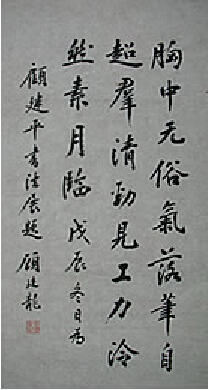 胸中无俗氣落筆自
超羣清勁見工力泠
然素月臨 戊辰冬日为
顧建平書法展題 顧廷龍